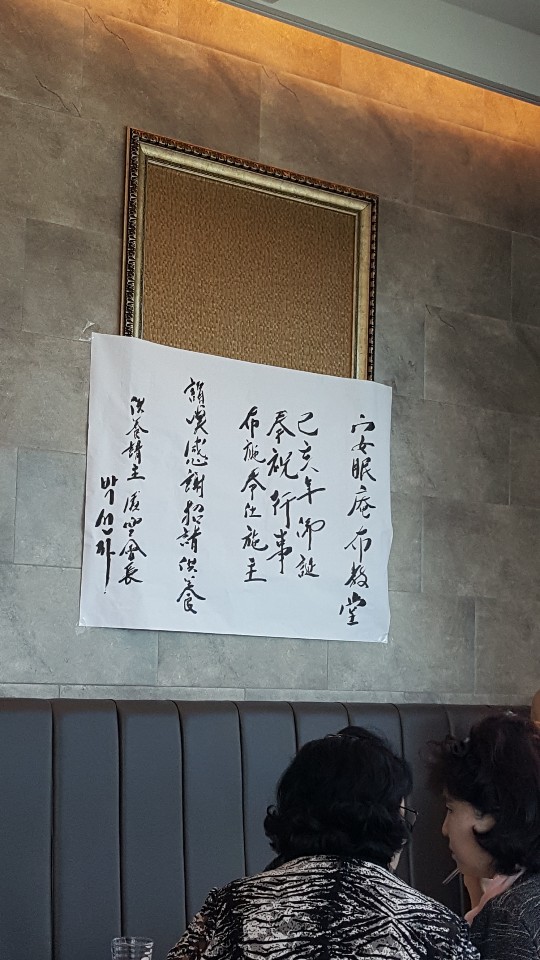 安眠庵布敎堂
己亥年佛誕
奉祝行事
布施奉仕施主
讚嘆感謝招請供養
供養請主 會長
박선자